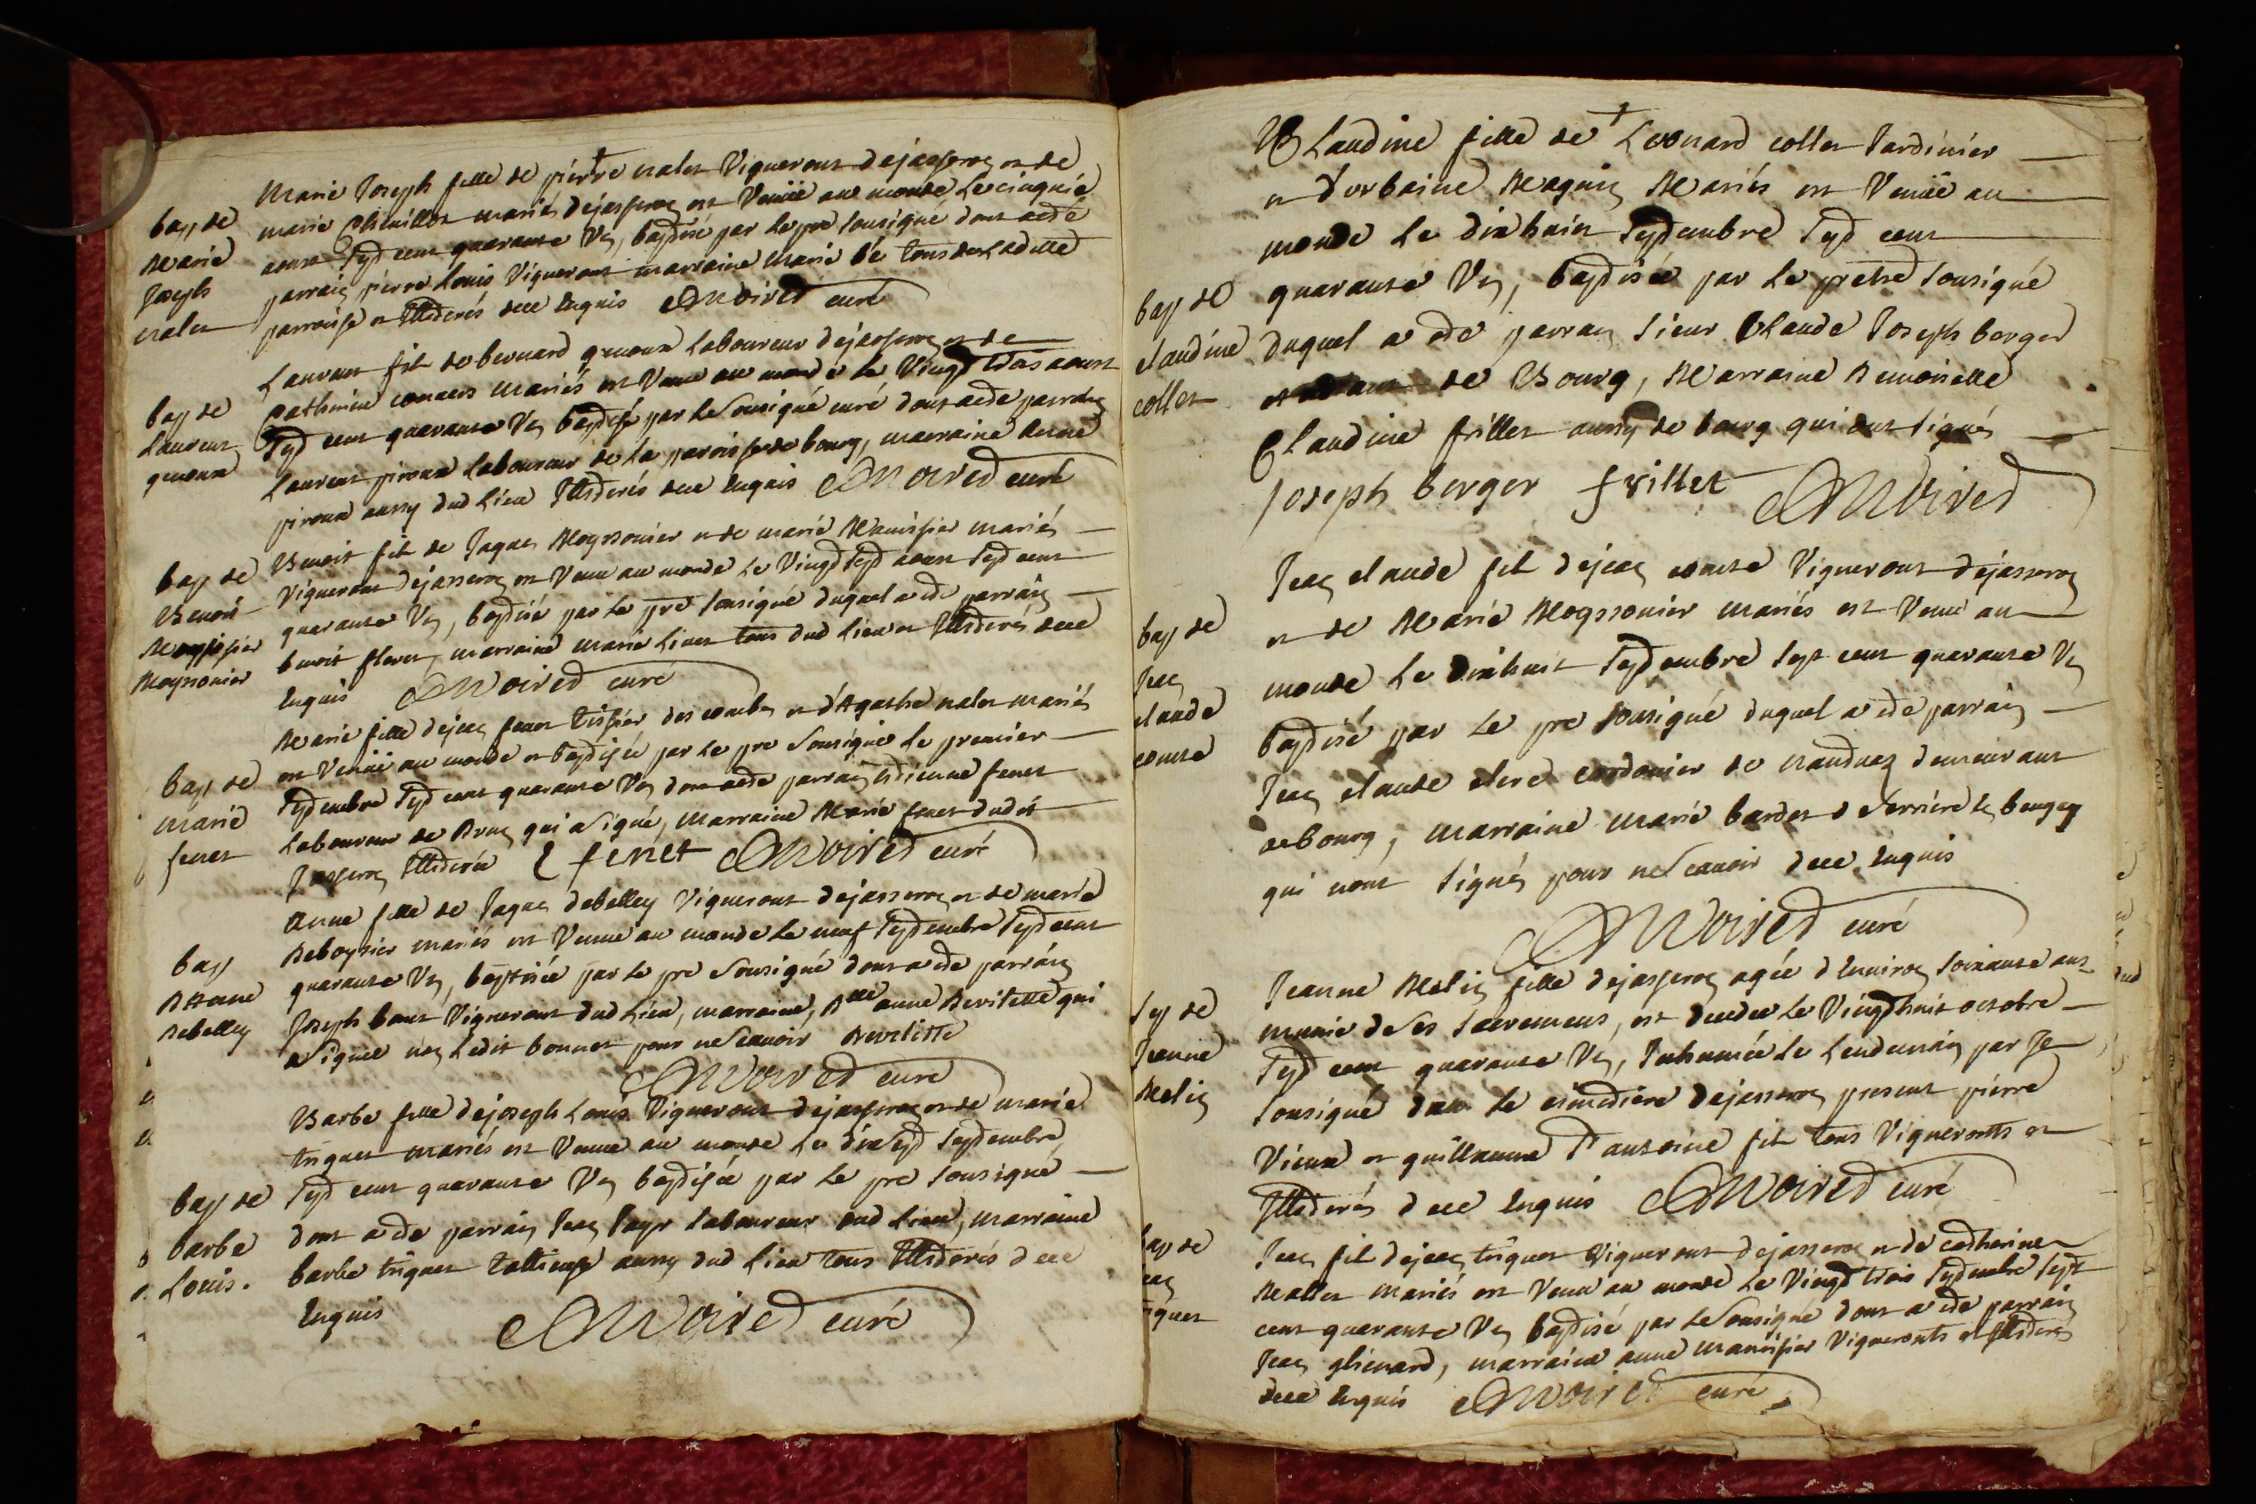 bap de
Marie
Joseph
nalet
Marie Joseph fille de pierre nalet Vigneront dejasseron et de
marie Chenillot mariés dejasseron est Venüe au monde Le cinquié
aoust Sept cent quarante Vn, baptisé par Le pre sousigné dont a eté
parrain pierre Louis Vigneront marraine Marie tous de Ladütte
parroisse et Illiterés dece Enquis Moired curé
bap de
Laurent
genoux
Laurent fil de bernard genoux Laboureur dejasseron et de
Catherine mariés est Venu au monde Le Vingt trois aoust
Sept cent quarante Vn baptisé par Le sousigné curé dont a eté parrain
Laurent piroux Laboureur de La paroisse de bourg, marraine Anne
piroux aussy dud Lieu Illiterés dece Enquis Moired curé
bap de
Benoit
Moyssonier
Benoit fil de Jaques Moyssonier et de marie Manissier mariés
Vigneront dejasseron est Venu au monde Le Vingt Sept aoust Sept cent
quarante Vn, baptisé par Le pre sousigné duquel a eté parrain
benoit marraine marie tous dud Lieu et Illiterés dece
Enquis Moired curé
bap de
marie
feret
Marie fille dejean feret tissier des combes et d'Agathe nalet mariés
est Venüe au monde et baptisée par Le pre Sousigné Le premier
Septembre Sept cent quarante Vn dont a eté parrain Etienne feret
Laboureur de qui a signé, marraine Marie feret dudit
Jasseron Illiterée E feret Moired curé
bap
D'Anne
Debelley
Anne fille de Jaques debelley Vigneront dejasseron et de marie
Deboyrier mariés est Venue au monde Le neuf Septembre Sept cent
quarante Vn, baptisée par Le pre Sousigné dont a eté parrain
Joseph bonet Vigneront dud Lieu, marraine, Dlle anne Devilette qui
a signée non Ledit bonnet pour ne Scauoir Devilette
Moired curé
bap de
barbe
Louis.
Barbe fille dejoseph Louis Vigneront dejasseron et de marie
triquet mariés est Venue au monde Le dix Sept Septembre
Sept cent quarante Vn baptisée par Le pre sousigné
dont a eté parrain Jean Laboureur dud Lieu, marraine
barbe triquet aussy dud Lieu tous Illiterés dece
Enquis Moired curé
bap de
claudine
collet
Claudine fille de Leonard collet Jardinier
et d'urbaine Magnin Mariés est Venüe au
monde Le dixhuit Septembre Sept cent
quarante Vn, baptisée par Le pretre sousigné
duquel a eté parrain sieur Claude Joseph berger
et de Bourg, Marraine Demoiselle
Claudine frillet aussy de bourg qui ont signés
Joseph berger frillet Moired
bap de
Jean
claude
comte
Jean claude fil dejean comte Vigneront dejasseron
et de Marie Moyssonier mariés est Venu au
monde Le dixhuit Septembre Sept cent quarante Vn
baptisé par Le pre sousigné duquel a eté parrain
Jean claude clerc cordonier de nanduaz demeurant
abourg, marraine marie bardet
qui nont signés pour ne Scauoir dece Enquis
Moired curé
Sep de
Jeanne
Melin
Jeanne Melin fille dejasseron agée d'Enuiron soixante ans
munie de Ses Sacremens, est decedée Le Vingthuit octobre
Sept cent quarante Vn, Inhumée Le Lendemain par Je
sousigné dans Le cimetiere dejasseron present pierre
Vieux et guillaume D'antoine fil tous Vigneronts et
Illiterés dece Enquis Moired curé
bap de
Jean
triquet
Jean fil dejean triquet Vigneront dejasseron et de catherine
Mallet mariés est Venu au monde Le Vingt trois Septembre Sept
cent quarante Vn baptisé par Le Sousigné dont a eté parrain
Jean ghienard, marraine anne manissier Vigneronts et Illiterés
dece Enquis Moired curé